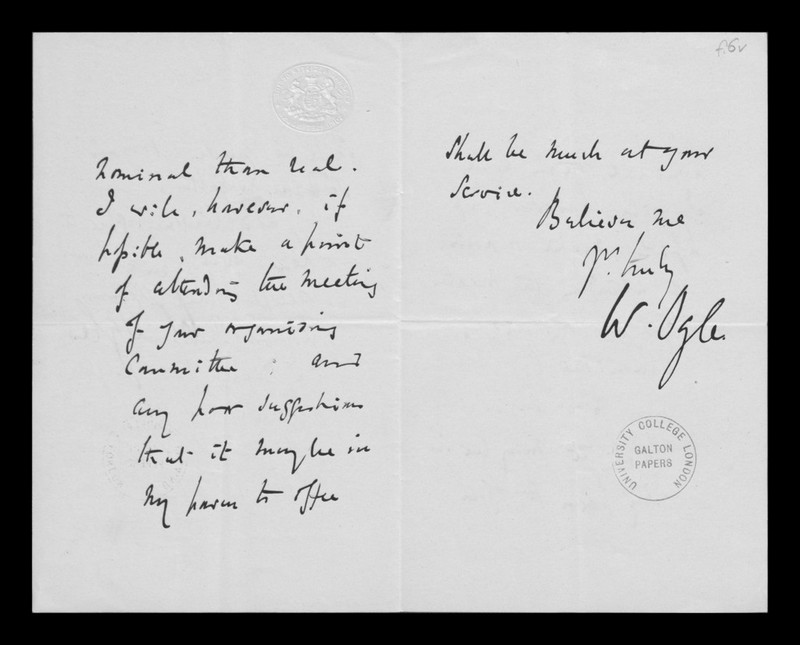 nominal than real.
I will, however, if
possible, make a point
of attending the meeting
of your organising
Committee; and
any poor suggestions
that it may be in
my power to offer
f.6v
shall be much at your
service.
Believe me
yrs. truly
W. Ogle.
UNIVERSITY COLLEGE LONDON
GALTON
PAPERS